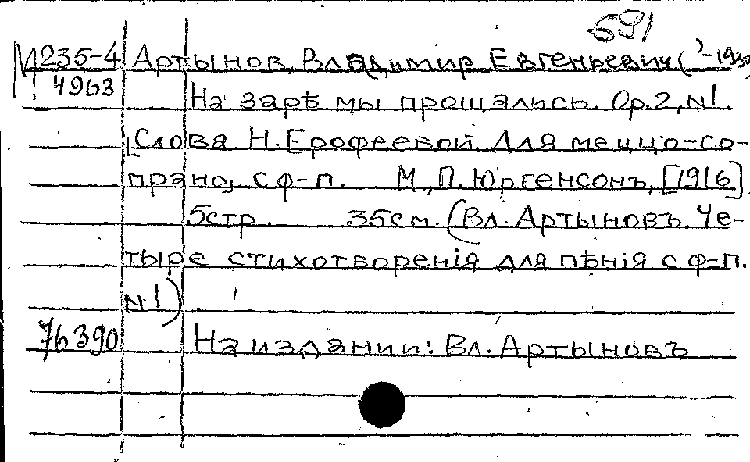 591
М 235-4 Артынов, Владимир Евгеньевич (?-1930
4963 На зарѣ мы прощались. Op.2, №1.
[Слова Н. Ерофеевой. Для меццо-со-
прано, с ф-п. М., П. Юргенсонъ, [1916].
5стр. 35см. (Вл. Артыновъ. Че-
тыре стихотворенiя для пѣнiя с ф-п.
№1)
76390 На издании: Вл. Артыновъ